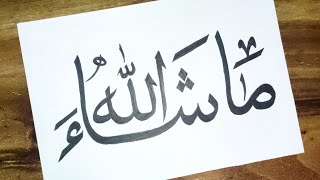 مَا شَاءَ اللهُ